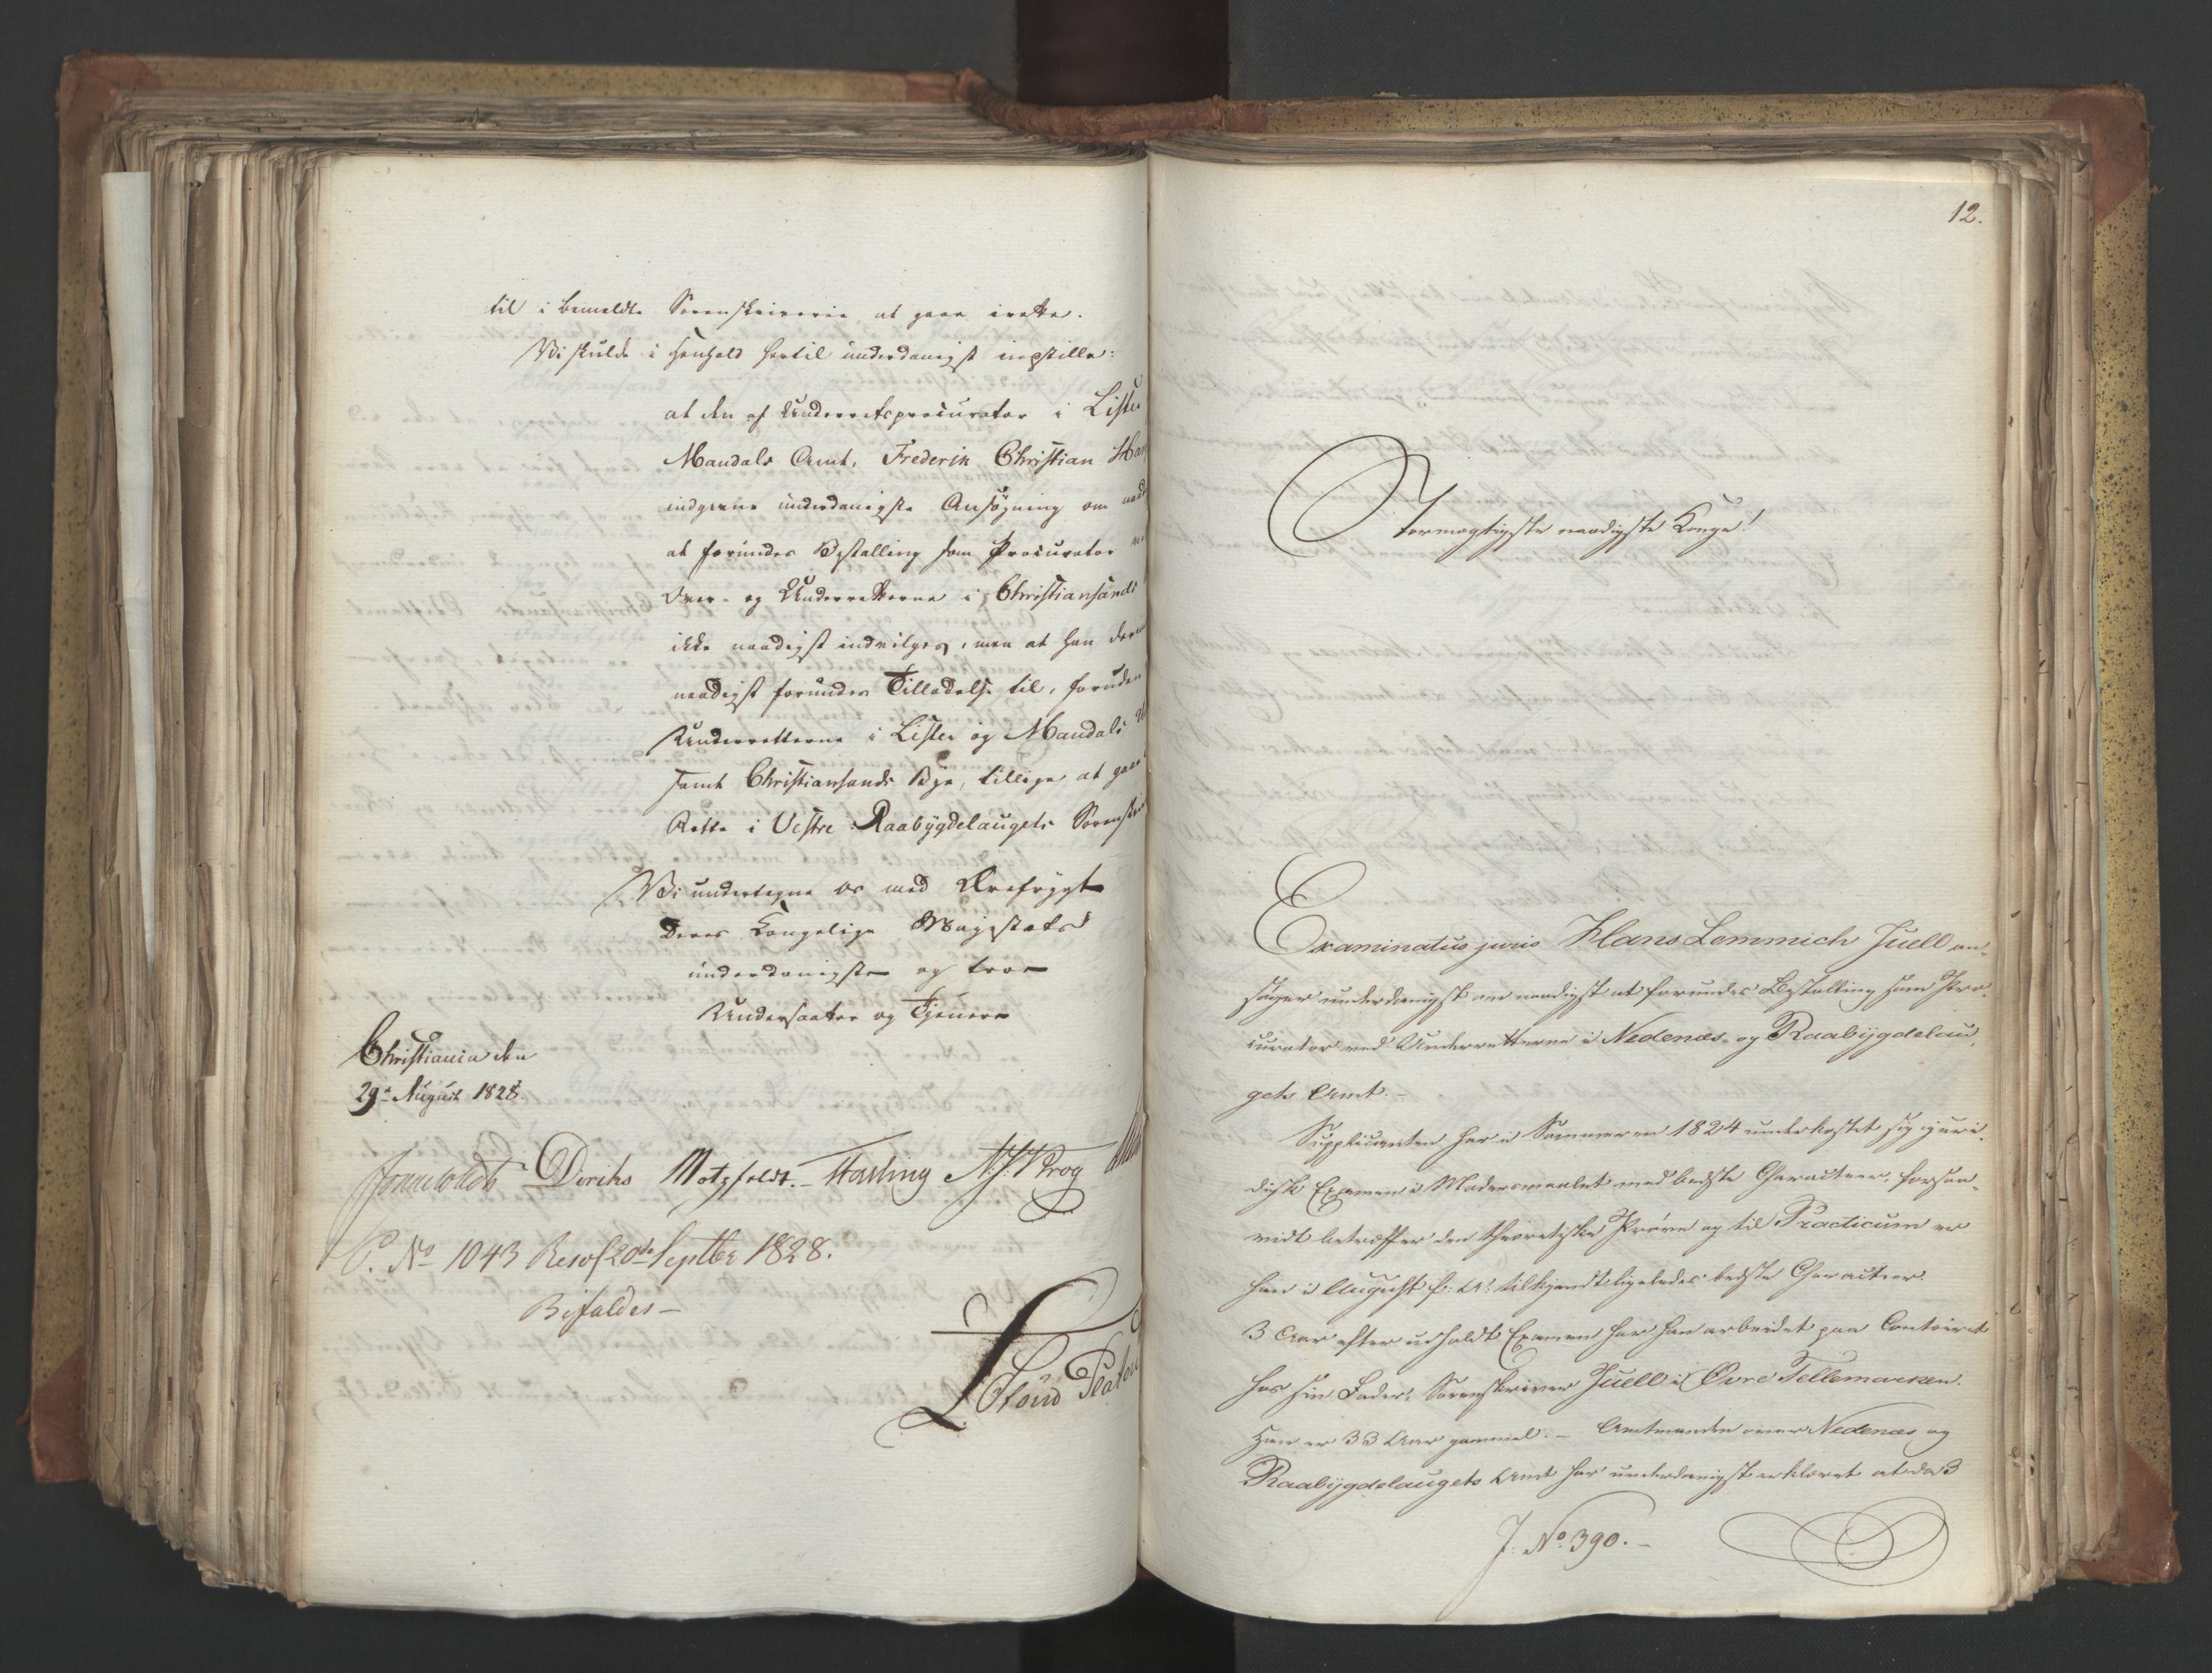 til i bemeldte Sorenskriverie at gaae irette.
Vi skulde i Henhold hertil underdanigst indstille:
at den af Underretsprocurator i Lister
Mandals Amt, Frederik Christian
indgivne underdanigste Ansøgning om
at forundes Bestalling som Procurator
Over- og Underretterne i Christiansands
ikke naadigst indvilges, men at han
naadigst forundes Tilladelse til, foruden
Underretterne i Lister og Mandals
samt Christiansands Bye, tillige at gaae
Rette i Vestre Raabygdelaugets
Vi undertegne os med Ærefrygt
Deres Kongelige Majestæts
underdanigste og troe
Undersaatter og Tjenere
Christiania den
29de August 1828.
Diriks Motzfeldt. N. J. Krog
P. No 1043 Resol 20de Septbr 1828.
Bifaldes –
12.
Stormægtigste naadigste Konge!
Examinatus juris Hans Lemmich Juell an-
søger underdanigst om naadigst at forundes Bestalling som Pro-
curator ved Underretterne i Nedenæs- og Raabygdelau-
gets Amt. –
Supplicanten har i Sommeren 1824 underkastet sig juri-
disk Examen i Modersmaalet med bedste Characteer, forsaa-
vidt betræffer den theoretiske Prøve og til Practicum er
han i August s: A: tilkjendt ligeledes bedste Characteer.
3 Aar efter udholdt Examen har han arbeidet paa Contoiret
hos sin Fader, Sorenskriver Juell i Øvre Tellemarken.
Han er 33 Aar gammel. – Amtmanden over Nedenæs og
Raabygdelaugets Amt har underdanigst erklæret at da 3
J: No 390. –